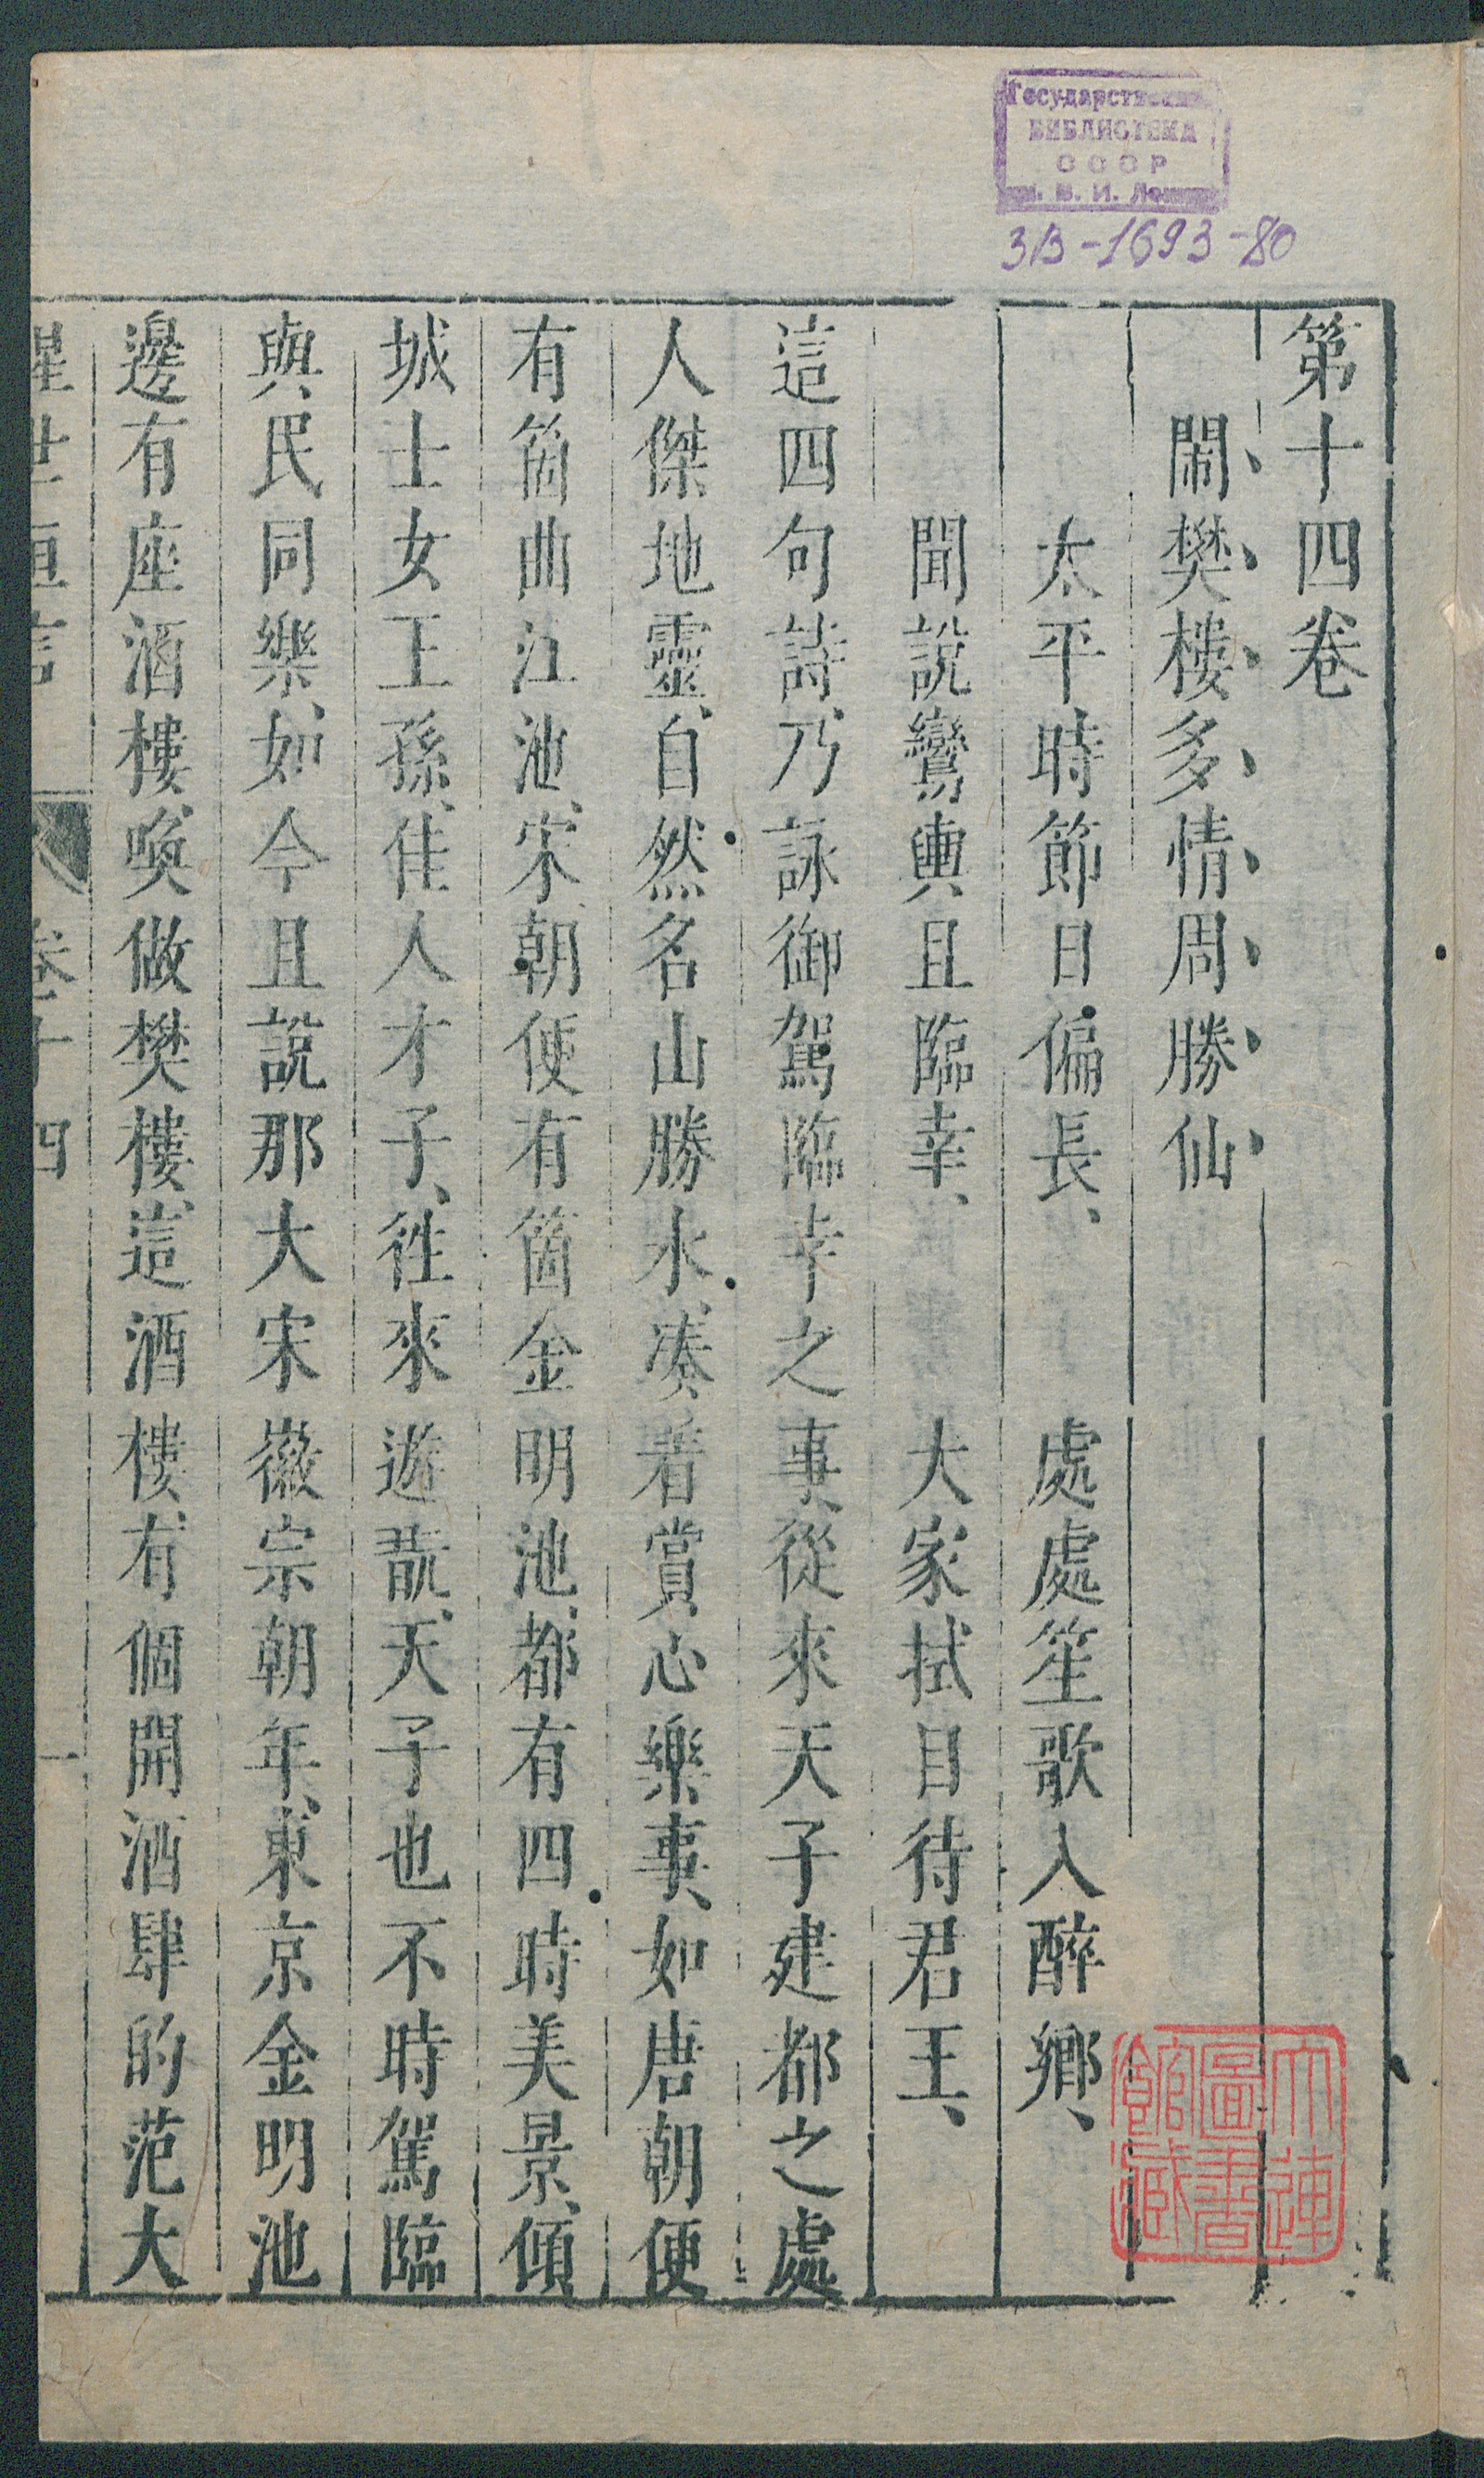 Государственная
БИБЛИОТЕКА
СССР
им. В. И. Ленина
3В-1693-80
第十四卷
鬧樊樓多情周勝仙
太平時節日偏長、處處笙歌入醉鄉、
聞說鸞輿且臨幸、大家拭目待君王、
這四句詩、乃詠御駕臨幸之事、從來天子建都之處
人傑地靈、自然名山勝水、湊着賞心樂事、如唐朝便
有箇曲江池、宋朝便有箇金明池、都有四時美景、傾
城士女王孫、佳人才子、徃來遊翫、天子也不時駕臨
與民同樂、如今且說那大宋徽宗朝年、東京金明池
邊有座酒樓、喚做樊樓、這酒樓、有個開酒肆的范大
醒世恒言 卷十四 一
大連
圖書
館藏